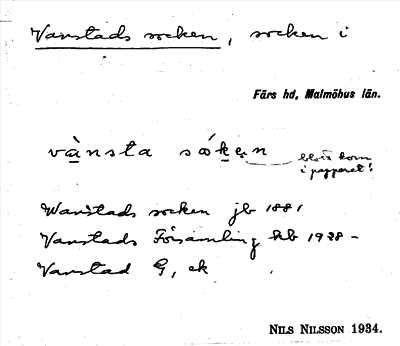 Vanstads socken, socken i
Färs hd, Malmöhus län.
vànsta sóken
blott korn
i papperet!
Wanstads socken jb 1881
Vanstads Församling kb 1928 –
Vanstad G, ek
NILS NILSSON 1934.